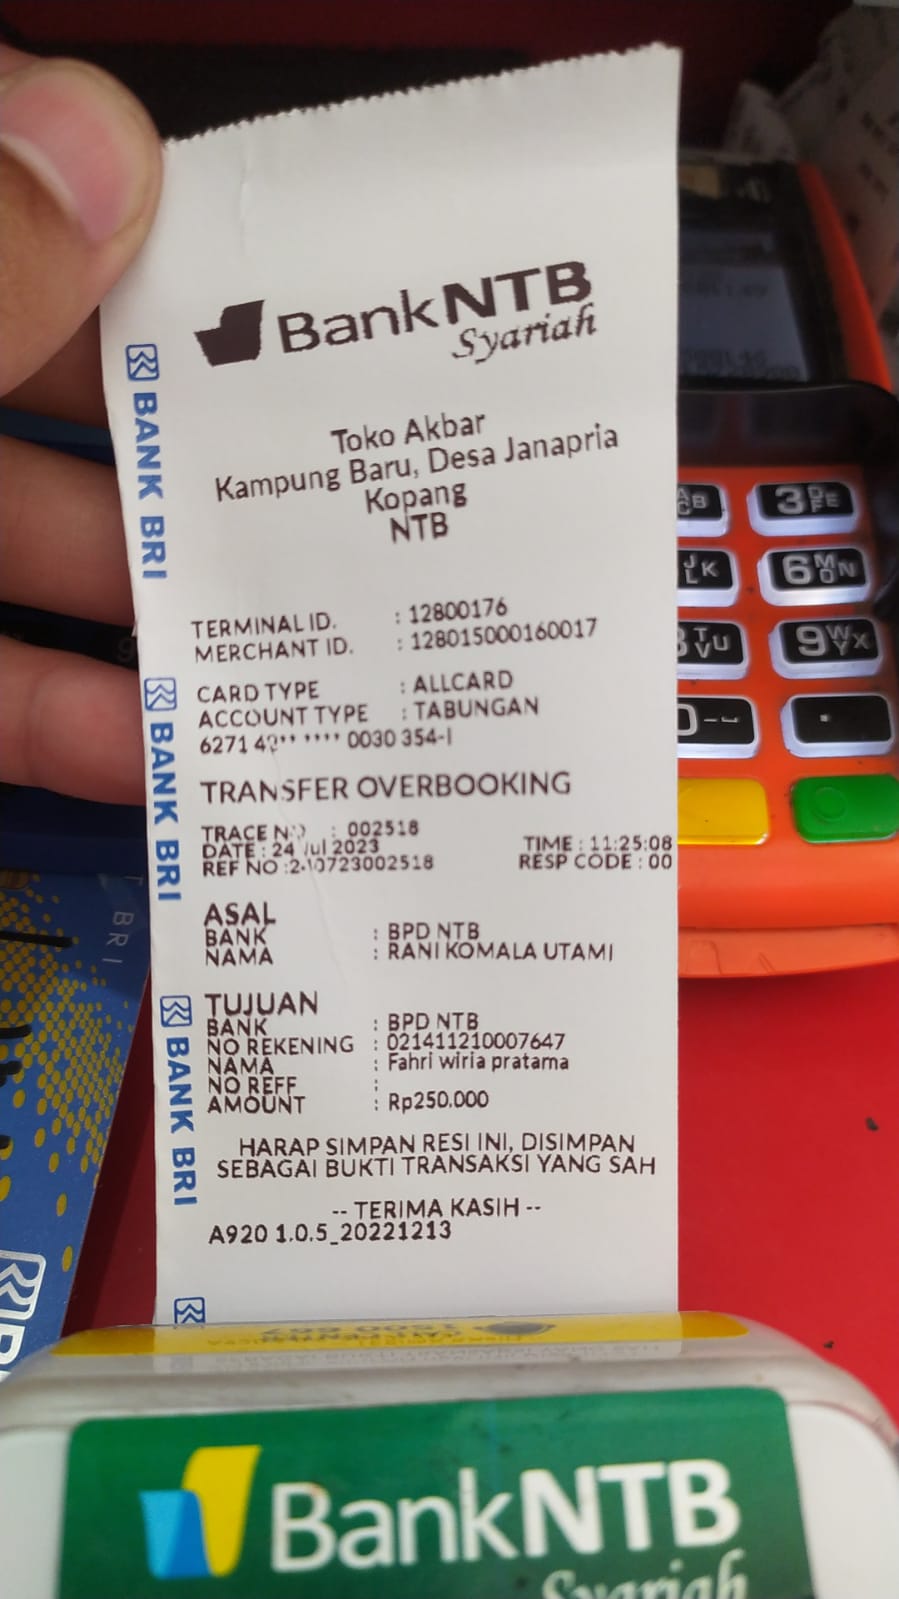 BankNTB
Syariah
Toko Akbar
Kampung Baru, Desa Janapria
Kopang
NTB
TERMINAL ID. : 12800176
MERCHANT ID. : 128015000160017
CARD TYPE : ALLCARD
ACCOUNT TYPE : TABUNGAN
6271 4 ** **** 0030 354-I
TRANSFER OVERBOOKING
TRACE NO : 002518
DATE : 24 Jul 2023 TIME : 11:25:08
REF NO : RESP CODE : 00
ASAL
BANK : BPD NTB
NAMA : RANI KOMALA UTAMI
TUJUAN
BANK : BPD NTB
NO REKENING : 021411210007647
NAMA : Fahri wiria pratama
NO REFF :
AMOUNT : Rp250.000
HARAP SIMPAN RESI INI, DISIMPAN
SEBAGAI BUKTI TRANSAKSI YANG SAH
-- TERIMA KASIH --
A920 1.0.5_20221213
BANK BRI
BANK BRI
BANK BRI
BRI
3 DEF
JKL
6 MNO
TUV
9 WXY
BankNTB
Syariah